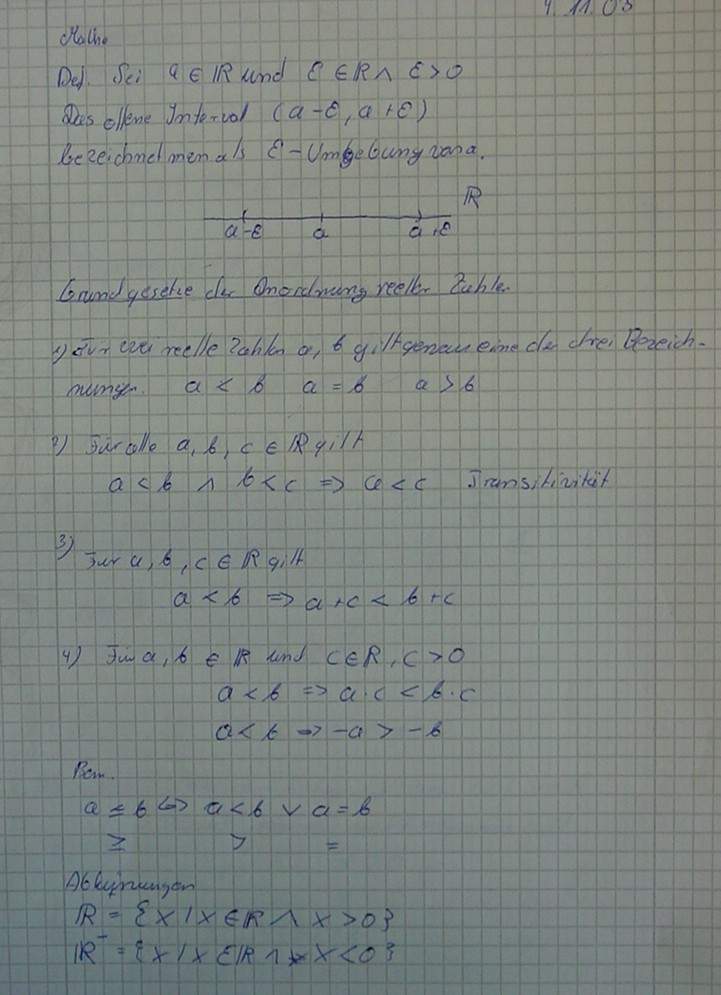 4.11.03
Mathe
Def. Sei a ∈ ℝ und ε ∈ ℝ ∧ ε > 0
Das offene Interval (a - ε, a + ε)
bezeichnet man als ε - Umgebung von a.
ℝ
a - ε a a + ε
Grundgesetze der Anordnung reeller Zahlen
1) Für zwei reelle Zahlen a, b gilt genau eine der drei Bezeich-
nungen. a < b a = b a > b
2) Für alle a, b, c ∈ ℝ gilt
a < b ∧ b < c => a < c Transitivität
3)
Für a, b, c ∈ ℝ gilt
a < b => a + c < b + c
4) Für a, b ∈ ℝ und c ∈ ℝ, c > 0
a < b => a · c < b · c
a < b => -a > -b
Bem.
a ≤ b <=> a < b ∨ a = b
≥ > =
Abkürzungen
ℝ = {x | x ∈ ℝ ∧ x > 0}
ℝ⁻ = {x | x ∈ ℝ ∧ x < 0}